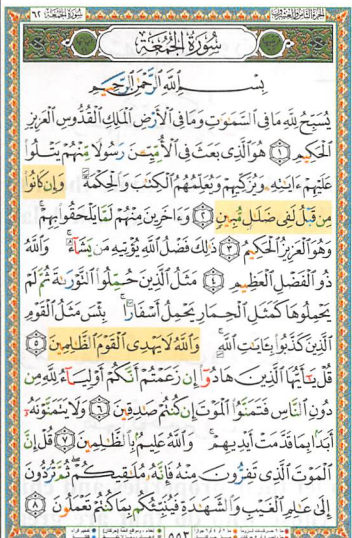 سُورَةُ الجُمُعَةِ ٦٢
الجزء الثامن والعشرون
سُورَةُ الجُمُعَةِ
بِسْمِ اللَّهِ الرَّحْمَٰنِ الرَّحِيمِ
يُسَبِّحُ لِلَّهِ مَا فِي السَّمَٰوَٰتِ وَمَا فِي الْأَرْضِ الْمَلِكِ الْقُدُّوسِ الْعَزِيزِ
الْحَكِيمِ ١ هُوَ الَّذِي بَعَثَ فِي الْأُمِّيِّـۧنَ رَسُولًا مِّنْهُمْ يَتْلُوا۟
عَلَيْهِمْ ءَايَٰتِهِۦ وَيُزَكِّيهِمْ وَيُعَلِّمُهُمُ الْكِتَٰبَ وَالْحِكْمَةَ وَإِن كَانُوا۟
مِن قَبْلُ لَفِي ضَلَٰلٍ مُّبِينٍ ٢ وَءَاخَرِينَ مِنْهُمْ لَمَّا يَلْحَقُوا۟ بِهِمْ ۚ
وَهُوَ الْعَزِيزُ الْحَكِيمُ ٣ ذَٰلِكَ فَضْلُ اللَّهِ يُؤْتِيهِ مَن يَشَآءُ ۚ وَاللَّهُ
ذُو الْفَضْلِ الْعَظِيمِ ٤ مَثَلُ الَّذِينَ حُمِّلُوا۟ التَّوْرَىٰةَ ثُمَّ لَمْ
يَحْمِلُوهَا كَمَثَلِ الْحِمَارِ يَحْمِلُ أَسْفَارًۢا ۚ بِئْسَ مَثَلُ الْقَوْمِ
الَّذِينَ كَذَّبُوا۟ بِـَٔايَٰتِ اللَّهِ ۚ وَاللَّهُ لَا يَهْدِي الْقَوْمَ الظَّٰلِمِينَ ٥
قُلْ يَٰٓأَيُّهَا الَّذِينَ هَادُوٓا۟ إِن زَعَمْتُمْ أَنَّكُمْ أَوْلِيَآءُ لِلَّهِ مِن
دُونِ النَّاسِ فَتَمَنَّوُا۟ الْمَوْتَ إِن كُنتُمْ صَٰدِقِينَ ٦ وَلَا يَتَمَنَّوْنَهُۥٓ
أَبَدًۢا بِمَا قَدَّمَتْ أَيْدِيهِمْ ۚ وَاللَّهُ عَلِيمٌۢ بِالظَّٰلِمِينَ ٧ قُلْ إِنَّ
الْمَوْتَ الَّذِي تَفِرُّونَ مِنْهُ فَإِنَّهُۥ مُلَٰقِيكُمْ ۖ ثُمَّ تُرَدُّونَ
إِلَىٰ عَٰلِمِ الْغَيْبِ وَالشَّهَٰدَةِ فَيُنَبِّئُكُم بِمَا كُنتُمْ تَعْمَلُونَ ٨
٥٥٣